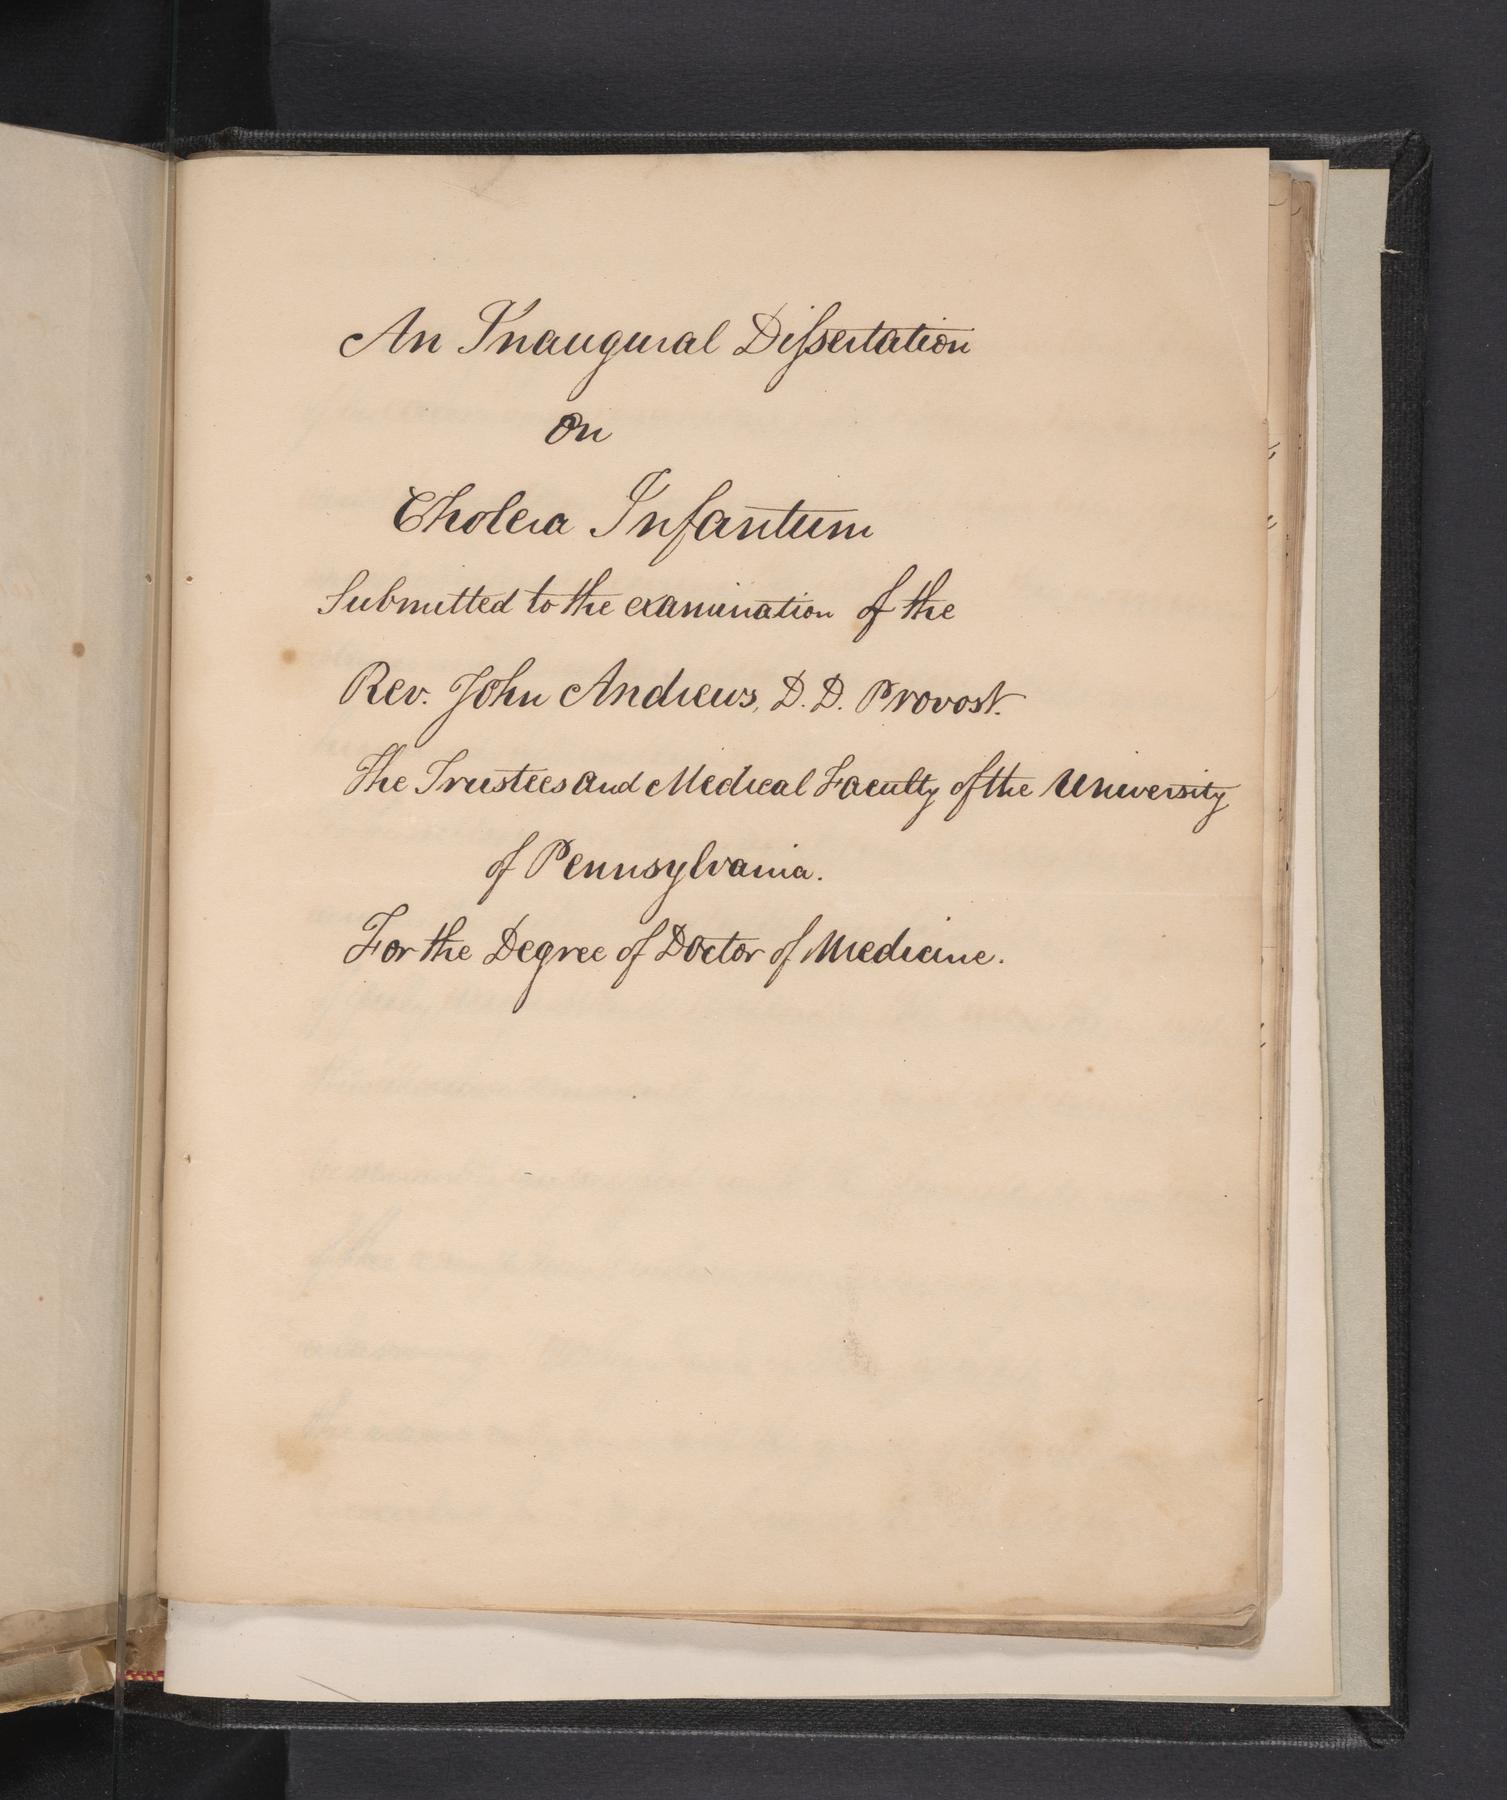 An Inaugural Dissertation
On
Cholera Infantum
Submitted to the examination of the
Rev. John Andrews, D. D. Provost.
The Trustees and Medical Faculty of the University
of Pennsylvania.
For the Degree of Doctor of Medicine.